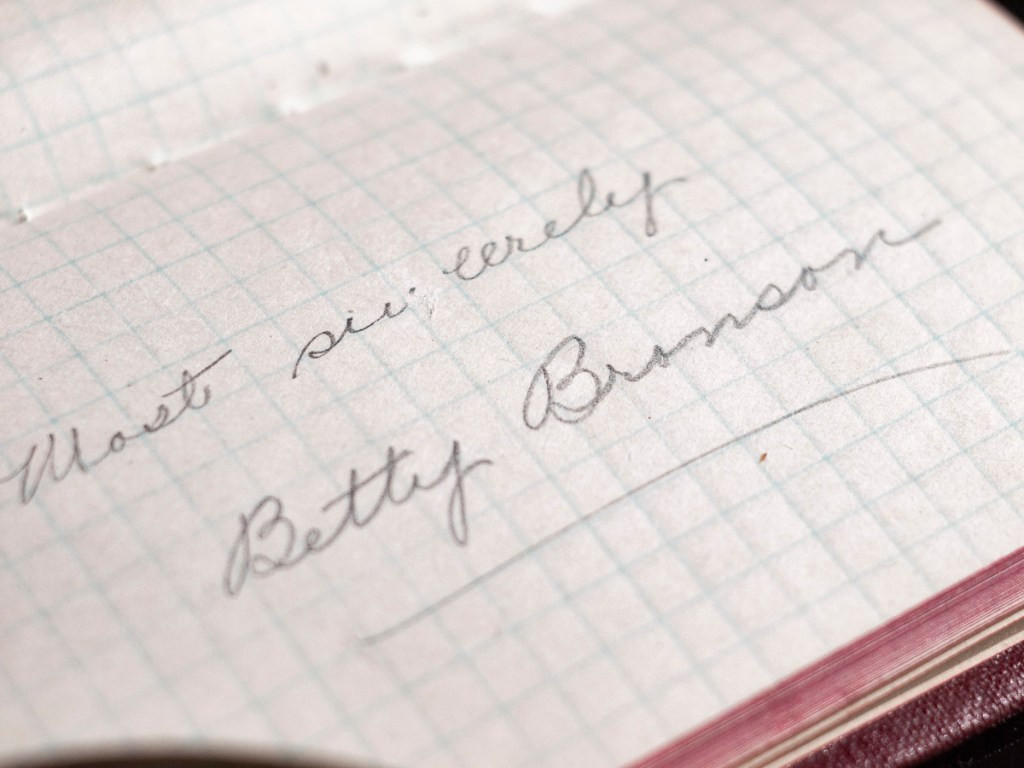 Most sincerely
Betty Bronson